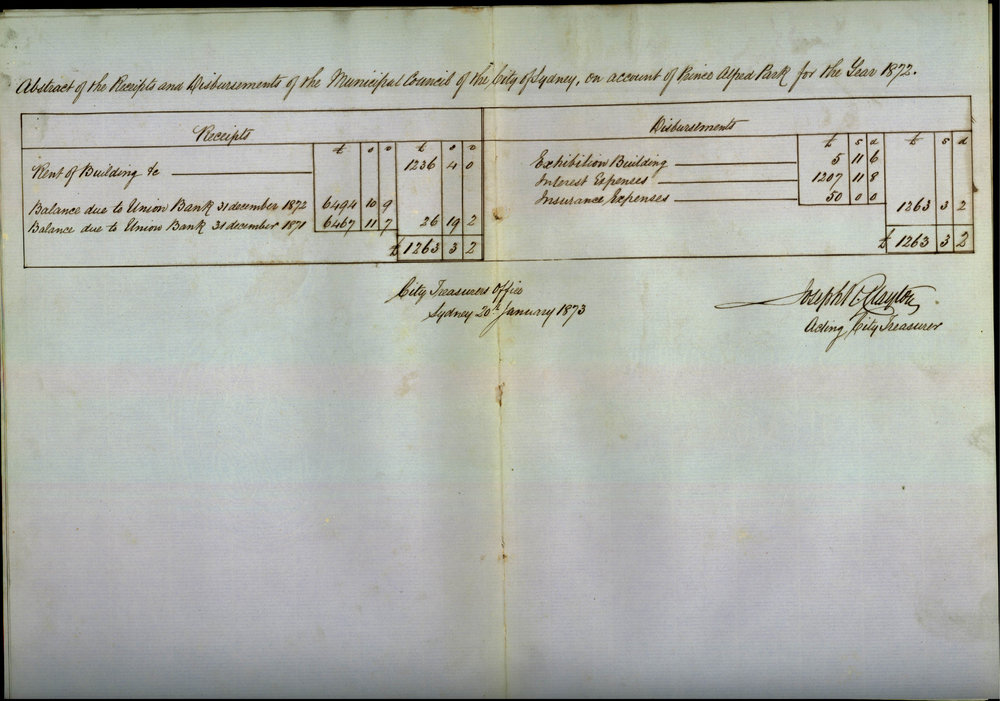 Abstract of the Receipts and Disbursements of the Municipal Council of the City of Sydney, on account of Prince Alfred Park for the Year 1872.
Receipts
£ s d £ s d
Rent of Building &c 1236 4 0
Balance due to Union Bank 31 december 1872 6494 10 9
Balance due to Union Bank 31 december 1871 6467 11 7 26 19 2
£ 1263 3 2
Disbursements
£ s d £ s d
Exhibition Building 5 11 6
Interest Expenses 1207 11 8
Insurance Expenses 50 0 0 1263 3 2
£ 1263 3 2
City Treasurers Office
Sydney 20th January 1873
Joseph C Clayton
Acting City Treasurer